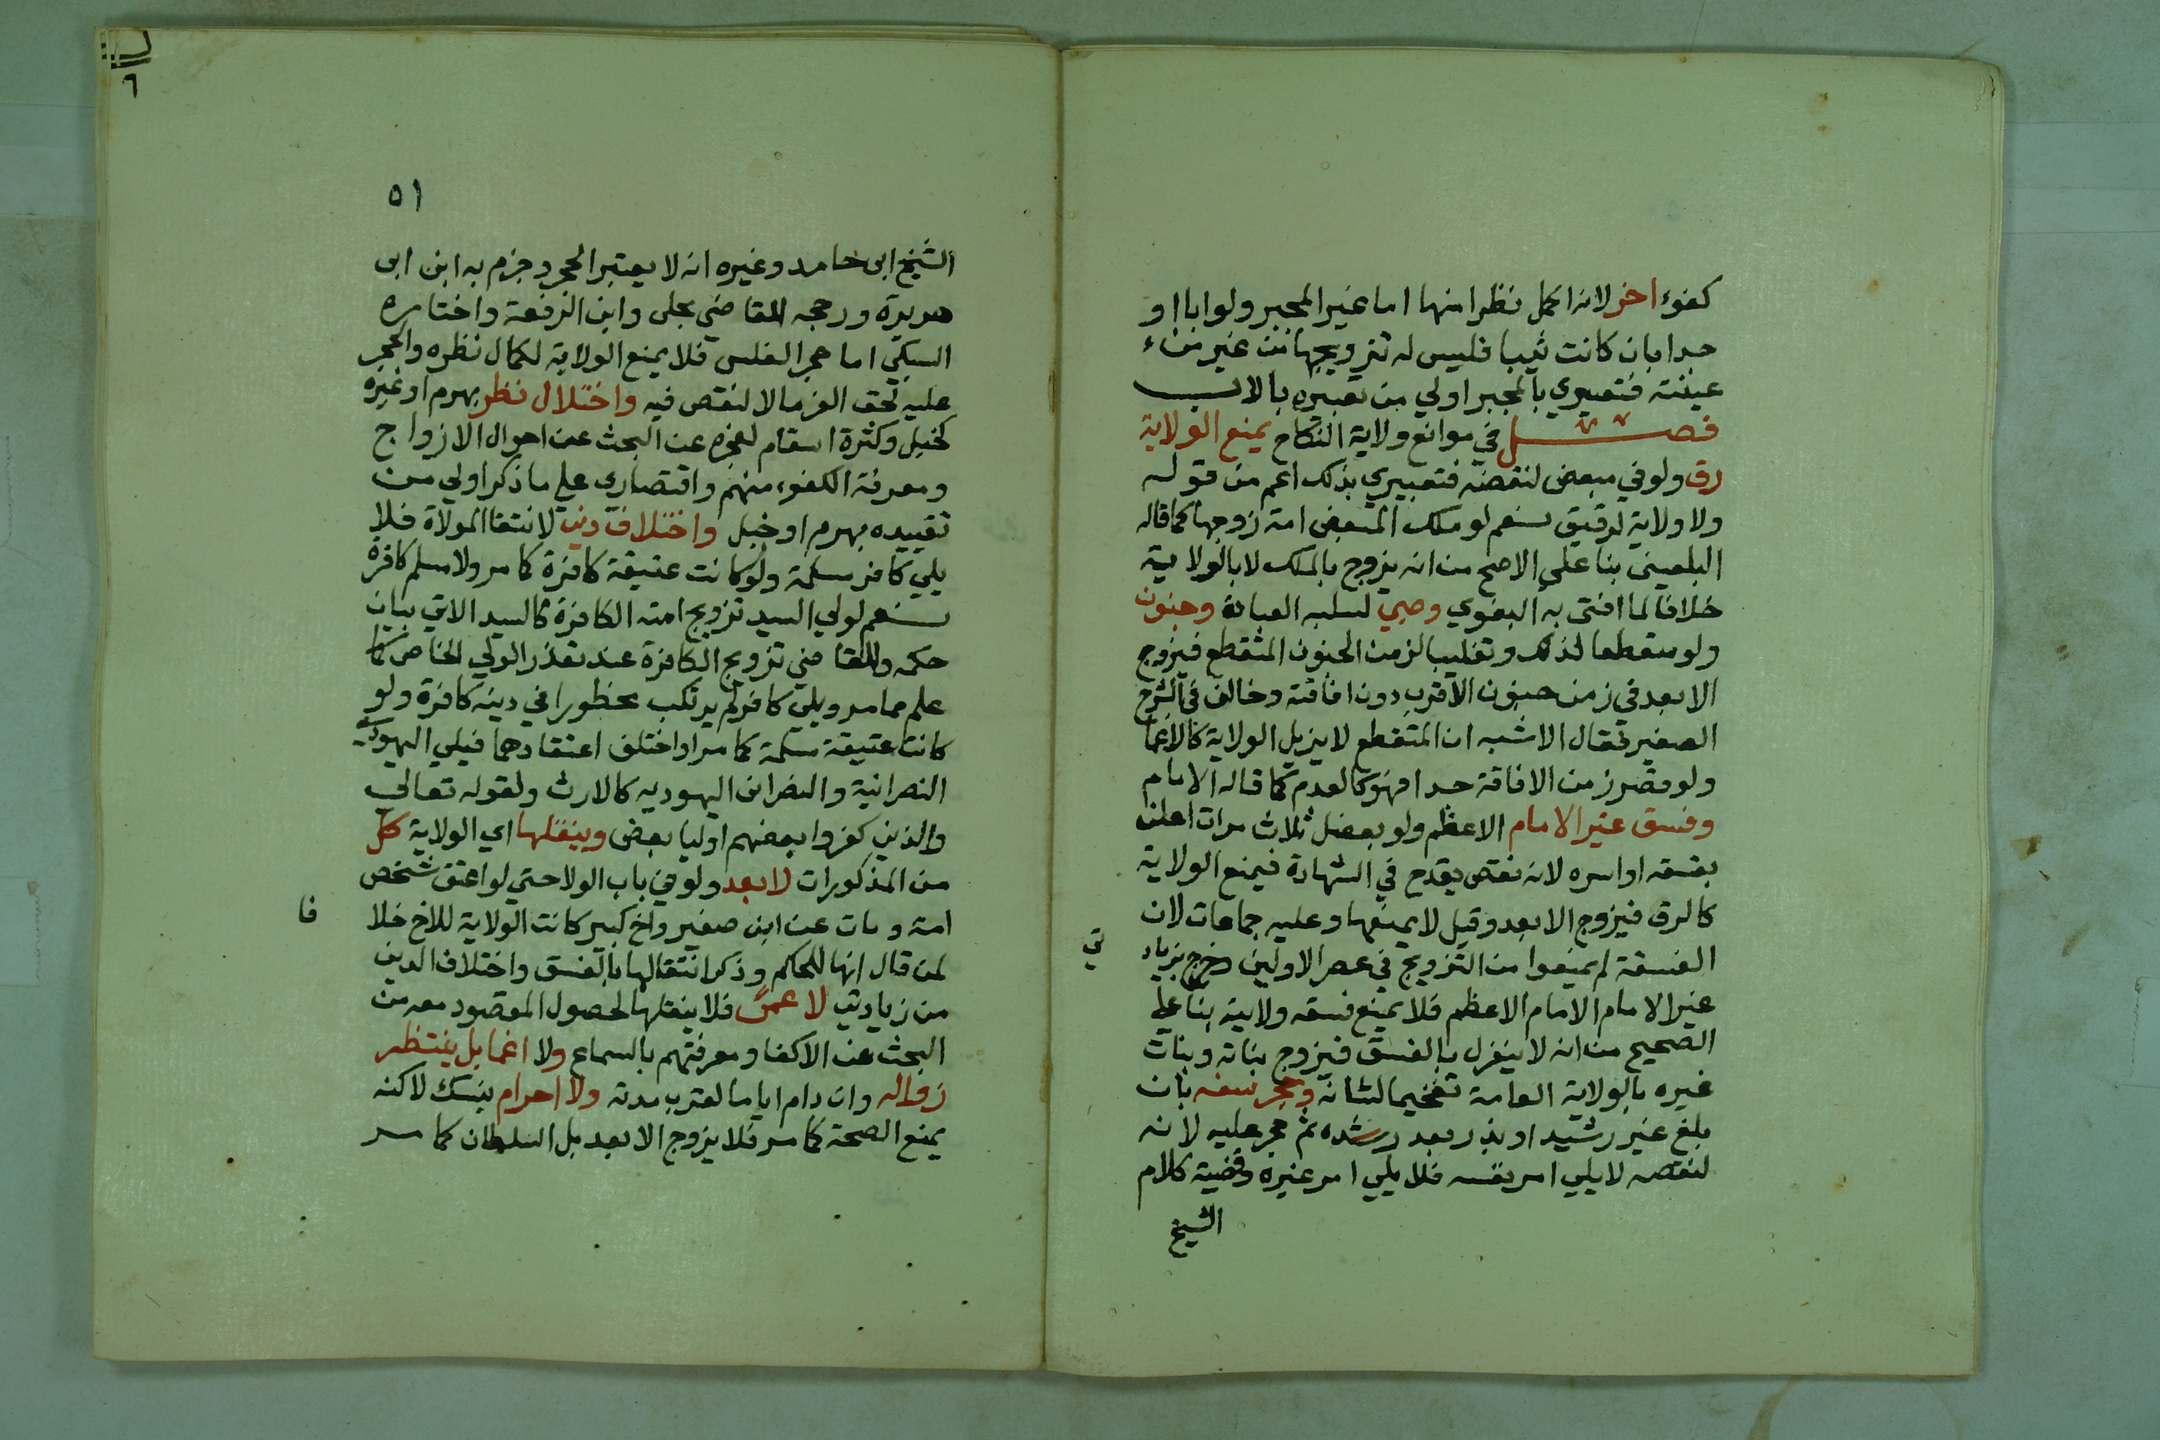 كفوء اخر لانه اكمل نظرا منها اما غير المجبر ولو ابا او
جدا بان كانت ثيبا فليس له تزويجها من غير من
عينته فتعبيري بالمجبر اولي من تعبيره بالاب
فصل في موانع ولاية النكاح يمنع الولاية
رق ولو في مبعض لنقصه فتعبيري بذلك اعم من قوله
ولا ولاية لرقيق نعم لو ملك المبعض امة زوجها كما قاله
البلقيني بنا علي الاصح من انه يزوج بالملك لا بالولاية
خلافا لما افتى به البغوي وصبي لسلبه العبارة وجنون
ولو متقطعا لذلك وتغليبا لزمن الجنون المتقطع فيزوج
الابعد في زمن جنون الاقرب دون افاقته وخالف في الشرح
الصغير فقال الاشبه ان المتقطع لا يزيل الولاية كالاغما
ولو قصر زمن الافاقة جدا فهو كالعدم كما قاله الامام
وفسق غير الامام الاعظم ولو بعضل ثلاث مرات اعلن
بفسقه او اسره لانه نقص يقدح في الشهادة فيمنع الولاية
كالرق فيزوج الابعد وقيل لا يمنعها وعليه جماعات لان
الفسقة لم يمنعوا من التزويج في عصر الاولين وخرج بزياد
تي
غير الامام الامام الاعظم فلا يمنع فسقه ولايته بنا علي
الصحيح من انه لا ينعزل بالفسق فيزوج بناته وبنات
غيره بالولاية العامة تفخيما لشانه وحجر سفه بان
بلغ غير رشيد او بذر بعد رشده ثم حجر عليه لانه
لنقصه لا يلي امر نفسه فلا يلي امر غيره وقضية كلام
الشيخ
٦
٥١
الشيخ ابى حامد وغيره انه لا يعتبر الحجر وجزم به ابن ابى
هريرة ورجحه القاضي مجلى وابن الرفعة واختاره
السبكي اما حجر الفلس فلا يمنع الولاية لكمال نظره والحجر
عليه لحق الغرما لا لنقص فيه واختلال نظر بهرم او غيره
كخبل وكثرة اسقام لعجزه عن البحث عن احوال الازواج
ومعرفة الكفوء منهم واقتصارى علي ما ذكر اولي من
تقييده بهرم او خبل واختلاف دين لانتفا الموالاة فلا
يلي كافر مسلمة ولو كانت عتيقة كافرة كما مر ولا مسلم كافرة
نعم لولي السيد تزويج امته الكافرة كالسيد الاتي بيان
حكمه وللقاضي تزويج الكافرة عند تعذر الولي الخاص كما
علم مما مر ويلي كافر لم يرتكب محظورا في دينه كافرة ولو
كانت عتيقة مسلمة كما مر او اختلف اعتقادهما فيلي اليهودي
النصرانية والنصراني اليهودية كالارث ولقوله تعالي
والذين كفروا بعضهم اوليا بعض وينقلها اي الولاية كل
من المذكورات لابعد ولو في باب الولا حتي لو اعتق شخص
امة ومات عن ابن صغير واخ كبير كانت الولاية للاخ خلا
فا
لمن قال انها للحاكم وذكر انتقالها بالفسق واختلاف الدين
من زيادتي لا عمى فلا ينقلها لحصول المقصود معه من
البحث عن الاكفا ومعرفتهم بالسماع ولا اغما بل ينتظر
زواله وان دام اياما لقرب مدته ولا احرام بنسك لاكنه
يمنع الصحة كما مر فلا يزوج الابعد بل السلطان كما مر